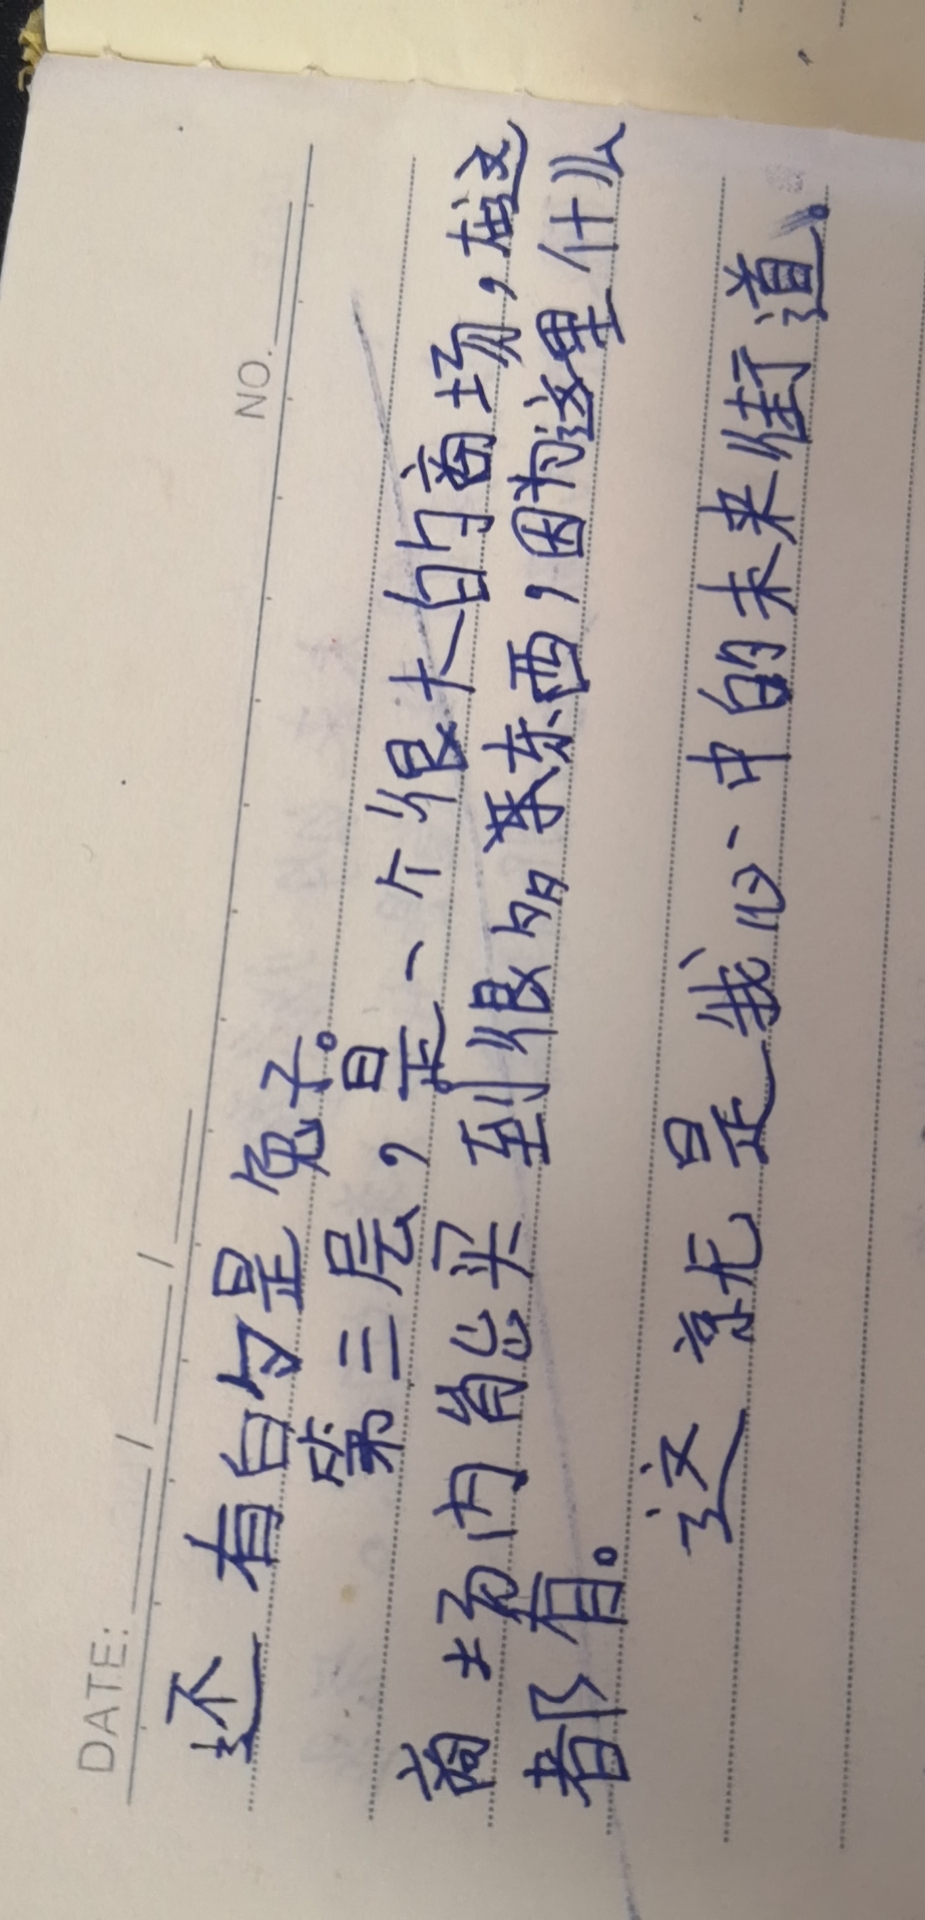 DATE: / /
NO.
还有白的是兔子。
第三层,是一个很大的商场,在这
商场内肯忘买到很多来东西,因为这里什么
都有。
这就是我心中的未来街道。